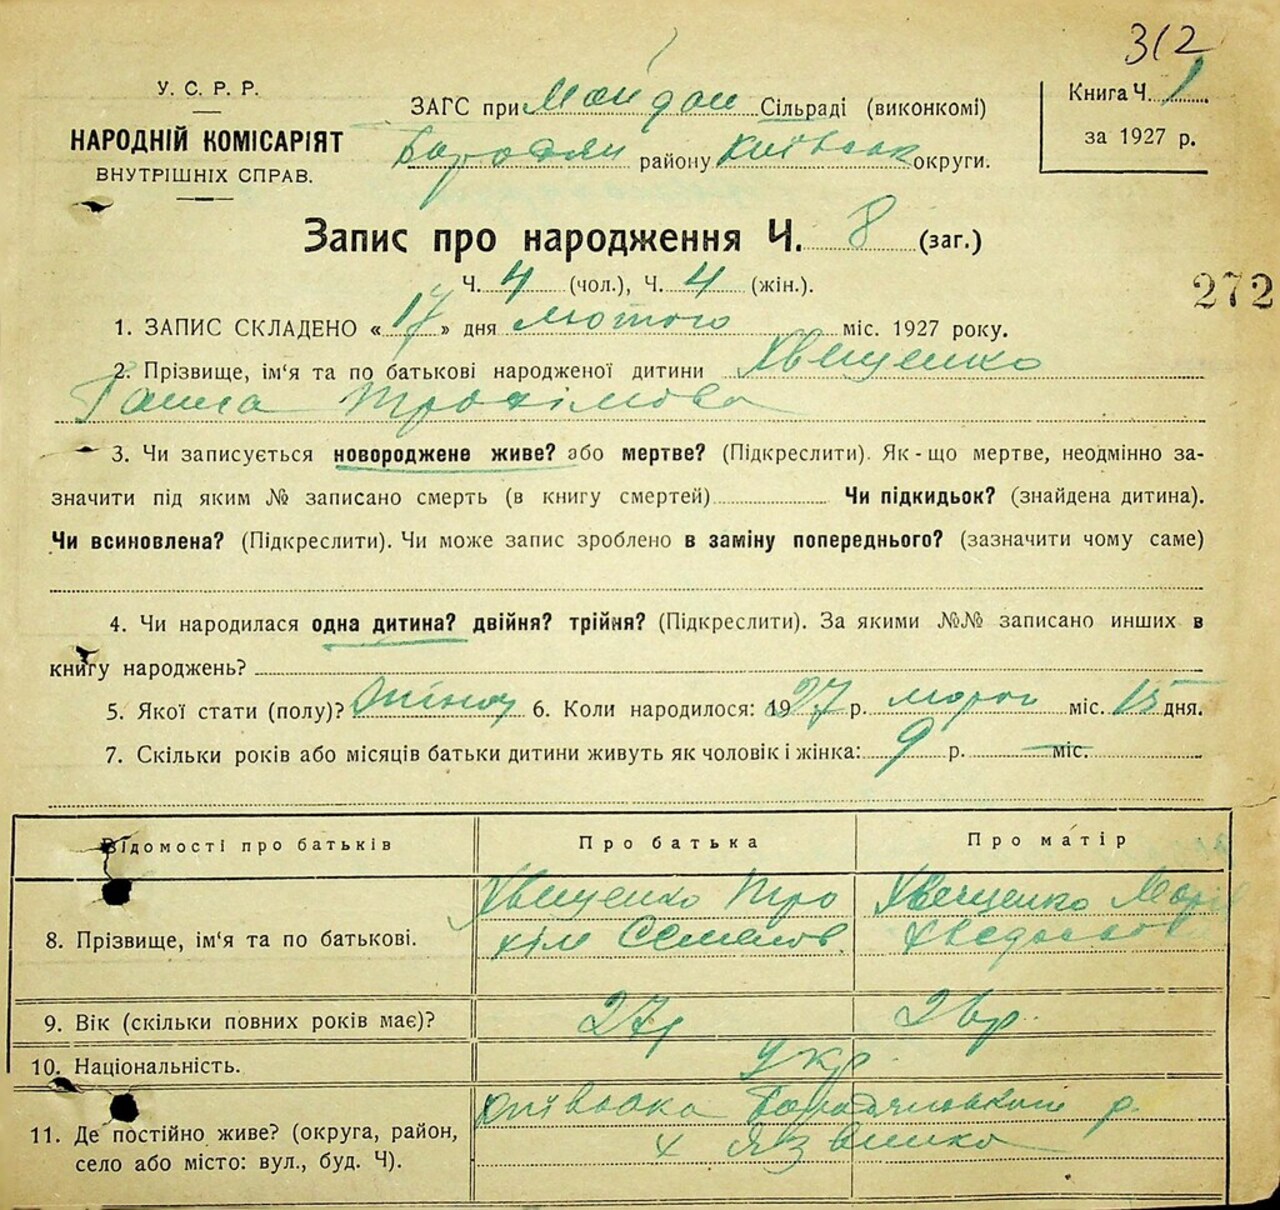 312
У. С. Р. Р.
НАРОДНІЙ КОМІСАРІЯТ
ВНУТРІШНІХ СПРАВ.
ЗАГС при Майдан Сільраді (виконкомі)
Бородян району Київськ округи.
Книга Ч. 1
за 1927 р.
Запис про народження Ч. 8 (заг.)
Ч. 4 (чол.), Ч. 4 (жін.).
272
1. ЗАПИС СКЛАДЕНО « 17 » дня лютого міс. 1927 року.
2. Прізвище, ім'я та по батькові народженої дитини Хвещенко
Ганна Трохімова
3. Чи записується новороджене живе? або мертве? (Підкреслити). Як-що мертве, неодмінно за-
значити під яким № записано смерть (в книгу смертей) Чи підкидьок? (знайдена дитина).
Чи всиновлена? (Підкреслити). Чи може запис зроблено в заміну попереднього? (зазначити чому саме)
4. Чи народилася одна дитина? двійня? трійня? (Підкреслити). За якими №№ записано инших в
книгу народжень?
5. Якої стати (полу)? жіноч 6. Коли народилося: 1927 р. міс. 15 дня.
7. Скільки років або місяців батьки дитини живуть як чоловік і жінка: 9 р. міс.
Відомості про батьків Про батька Про матір
Хвещенко Тро Хвещенко Марія
8. Прізвище, ім'я та по батькові. хім Семенов.
9. Вік (скільки повних років має)? 27р 26р.
10. Національність. укр.
Київська Бородянський р.
11. Де постійно живе? (округа, район,
х Язвинка
село або місто: вул., буд. Ч).